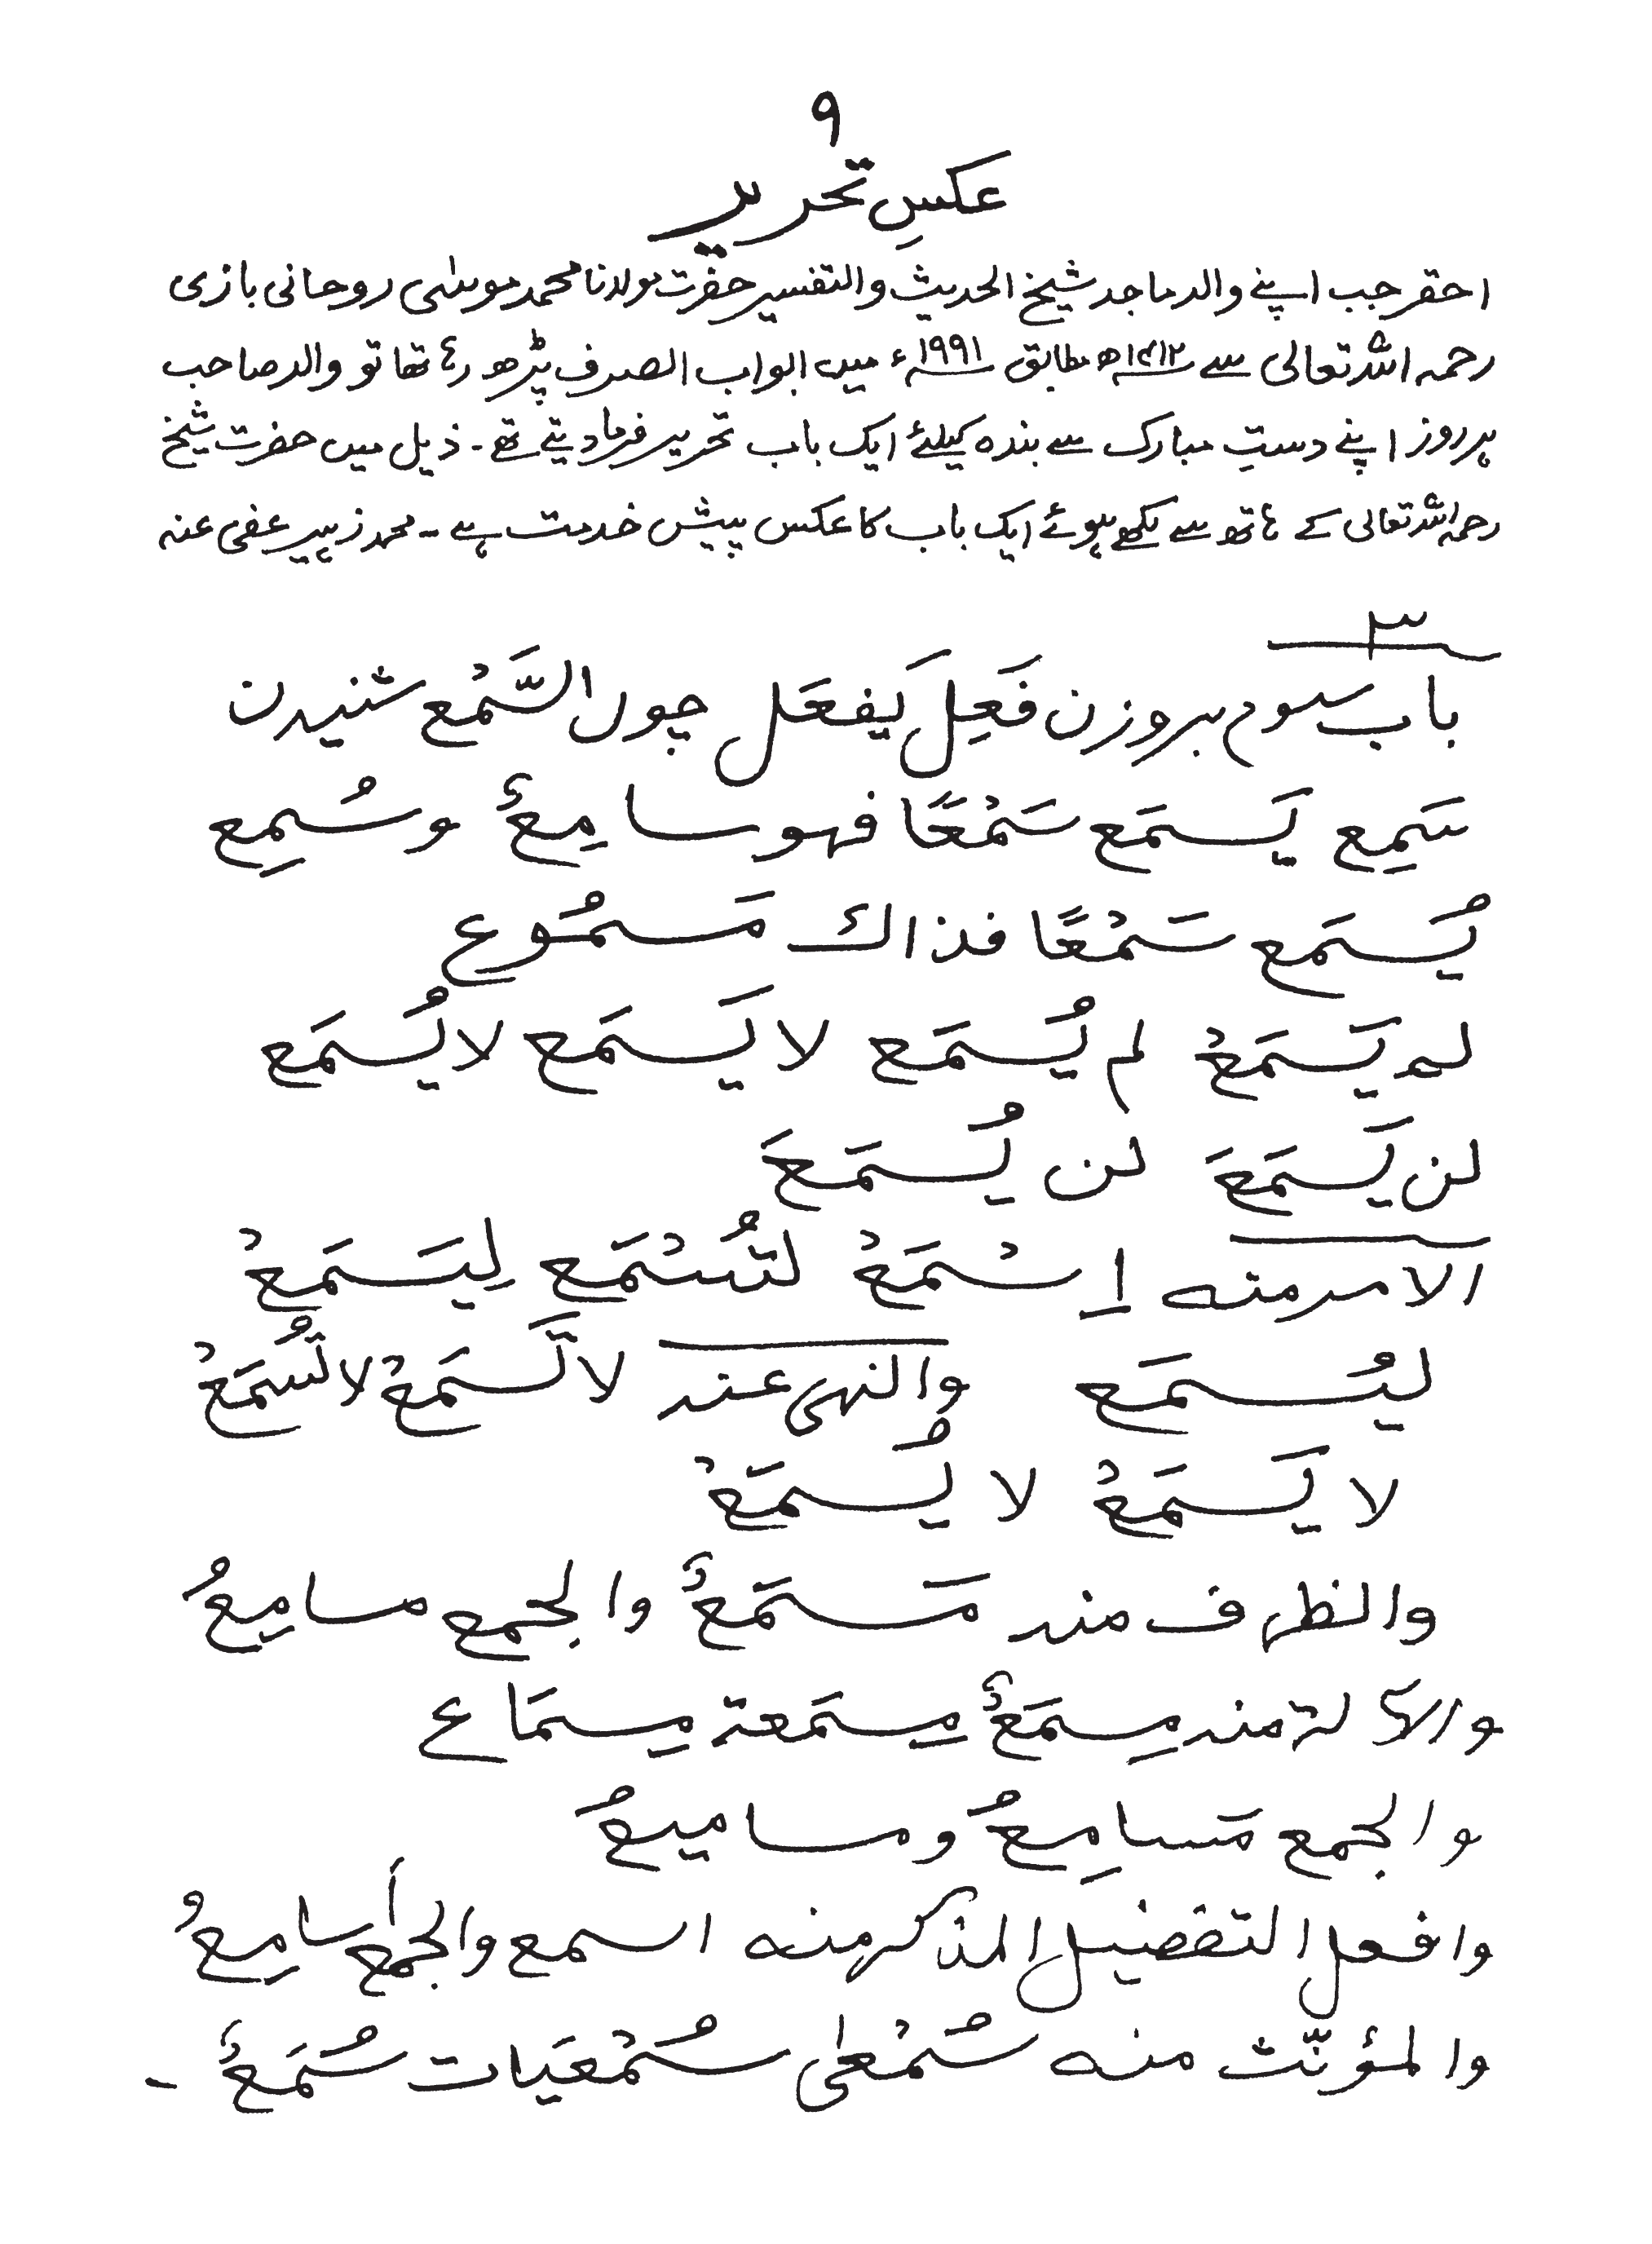 ۹
عکسِ تحریر
احقر جب اپنے والد ماجد شیخ الحدیث والتفسیر حضرت مولانا محمد موسیٰ روحانی بازی
رحمہ اللہ تعالی سے ۱۴۱۲ھ مطابق ۱۹۹۱ء میں ابواب الصرف پڑھ رہا تھا تو والد صاحب
ہر روز اپنے دستِ مبارک سے بندہ کیلئے ایک باب تحریر فرما دیتے تھے۔ ذیل میں حضرت شیخ
رحمہ اللہ تعالی کے ہاتھ سے لکھے ہوئے ایک باب کا عکس پیش خدمت ہے۔ محمد زہیر عفی عنہ
۳
باب سوم بروزن فَعِل يَفعَل چوں السَّمْع شنیدن
سَمِع يَسمَع سَمْعًا فهو سامِعٌ وسُمِع
يُسمَع سَمْعًا فذاك مَسمُوع
لم يَسمَعْ لم يُسمَع لا يَسمَع لا يُسمَع
لن يَسمَعَ لن يُسمَعَ
الامر منه اِسْمَعْ لتُسْمَع لِيَسمَعْ
ليُسمَع والنهى عنه لا تَسمَعْ لا تُسمَعْ
لا يَسمَعْ لا يُسمَعْ
والظرف منه مَسمَعٌ والجمع مسامِعُ
والآلة منه مِسمَعٌ مِسمَعة مِسمَاع
والجمع مَسامِعُ ومساميعُ
وافعل التفضيل المذكر منه اسمع والجمع أسامِعُ
والمؤنّث منه سُمْعٰى سُمْعَيات سُمَعٌ ۔